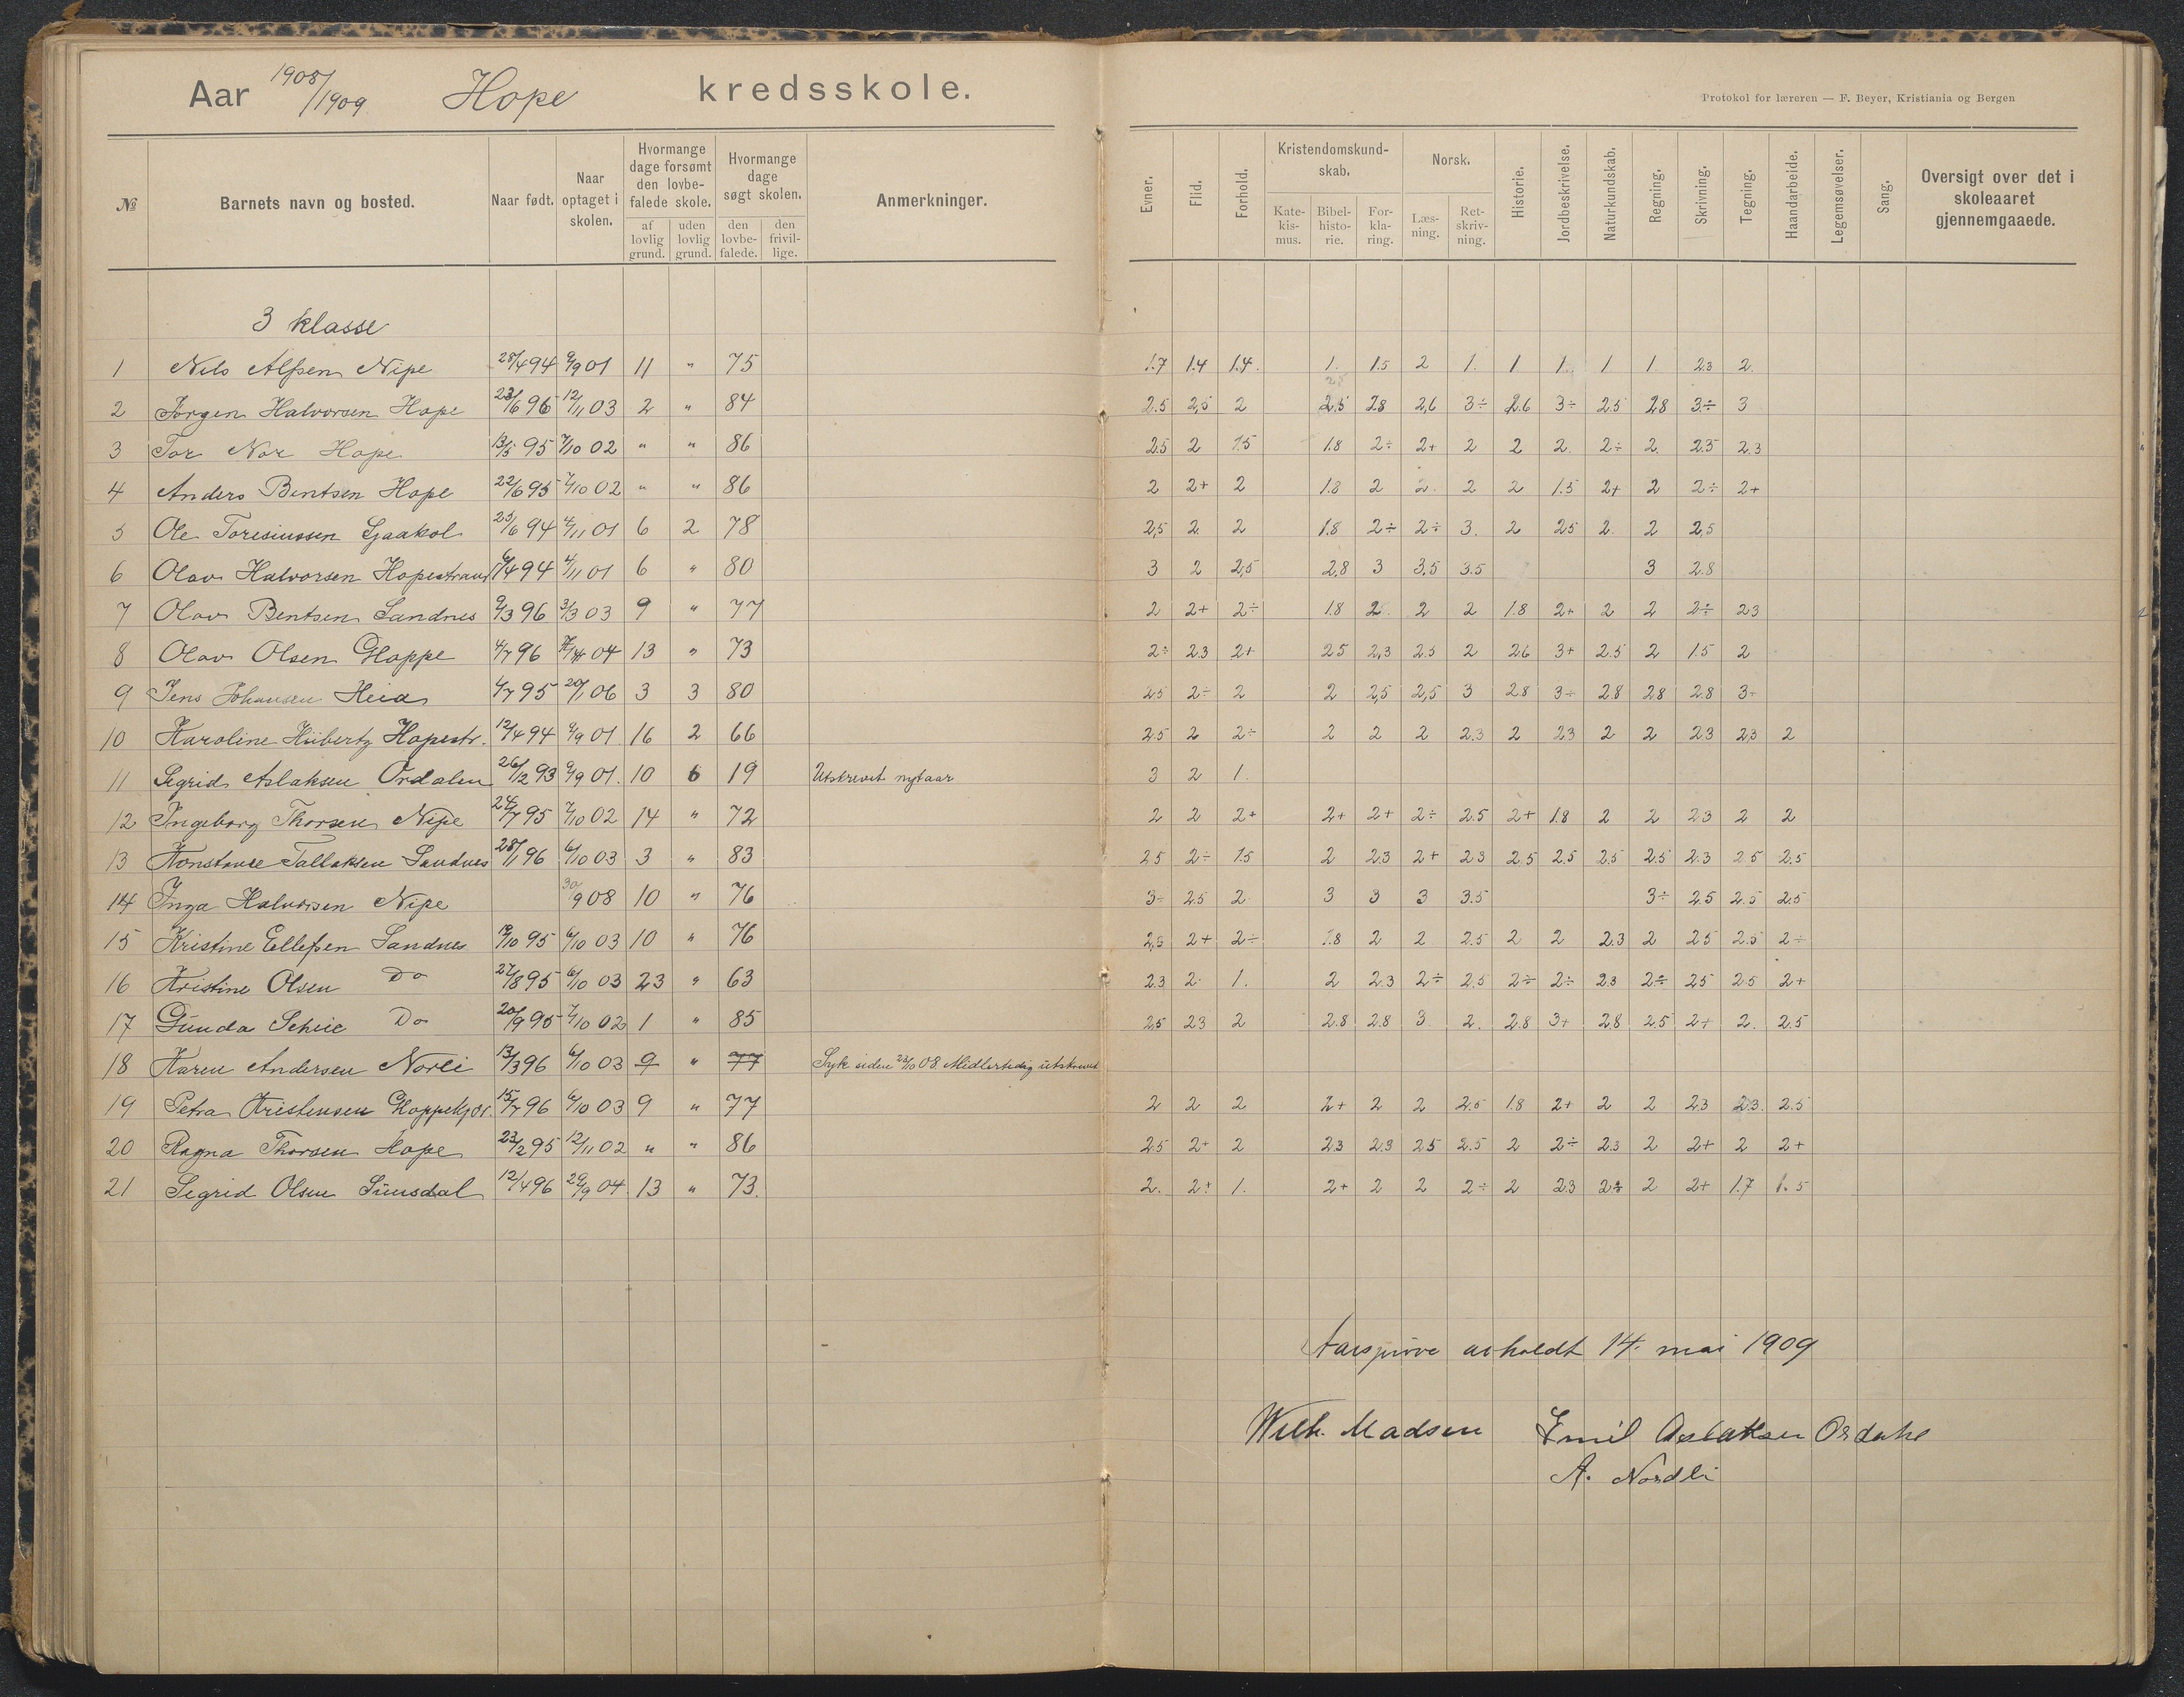 Aar 1908/1909 Hope kredsskole.
Protokol for læreren — F. Beyer, Kristiania og Bergen
№ Barnets navn og bosted. Naar født. Naar optaget i skolen. Hvormange dage forsømt den lovbefalede skole. af lovlig grund. uden lovlig grund. Hvormange dage søgt skolen. den lovbefalede. den frivillige. Anmerkninger. Evner. Flid. Forhold. Kristendomskundskab. Katekismus. Bibelhistorie. Forklaring. Norsk. Læsning. Retskrivning. Historie. Jordbeskrivelse. Naturkundskab. Regning. Skrivning. Tegning. Haandarbeide. Legemsøvelser. Sang. Oversigt over det i skoleaaret gjennemgaaede.
3 klasse
1 Nils Alfsen Nipe 28/4 94 9/9 01 11 " 75 1.7 1.4 1.4. 1. 1.5 2 1. 1 1. 1 1. 2.3 2.
2 Jørgen Halvorsen Hope 23/6 96 12/11 03 2 " 84 2.5 2,5 2 2.5 2.8 2,6 3÷ 2.6 3÷ 2.5 2.8 3÷ 3
3 Tor Nor Hope 13/5 95 7/10 02 " " 86 2.5 2 1.5 1.8 2÷ 2+ 2 2 2. 2÷ 2. 2.5 2.3
4 Anders Bentsen Hope 22/6 95 7/10 02 " " 86 2 2+ 2 1.8 2 2. 2 2 1.5 2+ 2 2÷ 2+
5 Ole Toresiussen 25/6 94 4/11 01 6 2 78 2,5 2. 2 1.8 2÷ 2÷ 3. 2 2.5 2. 2 2,5
6 Olav Halvorsen Hopestrand 6/4 94 4/11 01 6 " 80 3 2 2,5 2,8 3 3.5 3.5 3 2.8
7 Olav Bentsen Sandnes 9/3 96 3/3 03 9 " 77 2 2+ 2÷ 1.8 2. 2 2 1.8 2+ 2 2 2÷ 2.3
8 Olav Olsen Gloppe 4/7 96 04 13 " 73 2÷ 2.3 2+ 2.5 2,3 2.5 2 2.6 3+ 2.5 2 1.5 2
9 Jens Johansen Heia 4/7 95 20/1 06 3 3 80 2.5 2÷ 2 2 2,5 2,5 3 2.8 3÷ 2.8 2.8 2.8 3÷
10 Karoline Hübertz Hopestr. 12/4 94 9/9 01. 16 2 66 2.5 2 2÷ 2 2 2 2.3 2 2.3 2 2 2.3 2,3 2
11 Segrid Aslaksen Ordalen 26/2 93 9/9 01. 10 6 19 Utskrevet nytaar 3 2 1.
12 Ingeborg Thorsen Nipe 24/7 95 7/10 02 14 " 72 2 2 2+ 2+ 2+ 2÷ 2.5 2+ 1.8 2 2 2.3 2 2
13 Konstance Tallaksen Sandnes 28/1 96 6/10 03 3 " 83 2.5 2÷ 1.5 2 2.3 2+ 2.3 2.5 2.5 2.5 2.5 2.3 2.5 2.5
14 Inga Halvorsen Nipe 30/9 08 10 " 76 3÷ 2.5 2 3 3 3 3.5 3÷ 2.5 2.5 2.5
15 Kristine Ellefsen Sandnes 95 6/10 03 10 " 76 2,5 2+ 2÷ 1.8 2 2 2.5 2 2 2.3 2 2.5 2.5 2÷
16 Kristine Olsen Do 27/8 95 6/10 03 23 " 63 2.3 2. 1. 2 2.3 2÷ 2.5 2÷ 2÷ 2.3 2÷ 2.5 2.5 2+
17 Günda Scheie Do 20/9 95 7/10 02 1 " 85 2,5 2.3 2 2.8 2.8 3. 2. 2.8 3+ 2.8 2.5 2÷ 2. 2.5
18 Karen Andersen Norli 13/3 96 6/10 03 9 " 77 Syk siden 23/10 08. Midlertidig utskrevet
19 Petra Kristensen Gloppekjær. 15/7 96 6/10 03 9 " 77 2 2 2 2+ 2 2 2.5 1.8 2+ 2 2 2.3 2.3. 2.5
20 Ragna Thorsen Hope 23/2 95 12/11 02 " " 86 2.5 2+ 2 2.3 2.3 2.5 2.5 2 2÷ 2.3 2 2+ 2 2+
21 Segrid Olsen Sünsdal 12/4 96 29/9 04. 13 " 73. 2. 2+ 1. 2+ 2 2 2÷ 2 2.3 2 2+ 1.7 1.5
Aarsprøve avholdt 14. mai 1909
Wilh. Madsen Emil Aslaksen Ordahl
A. Nordli